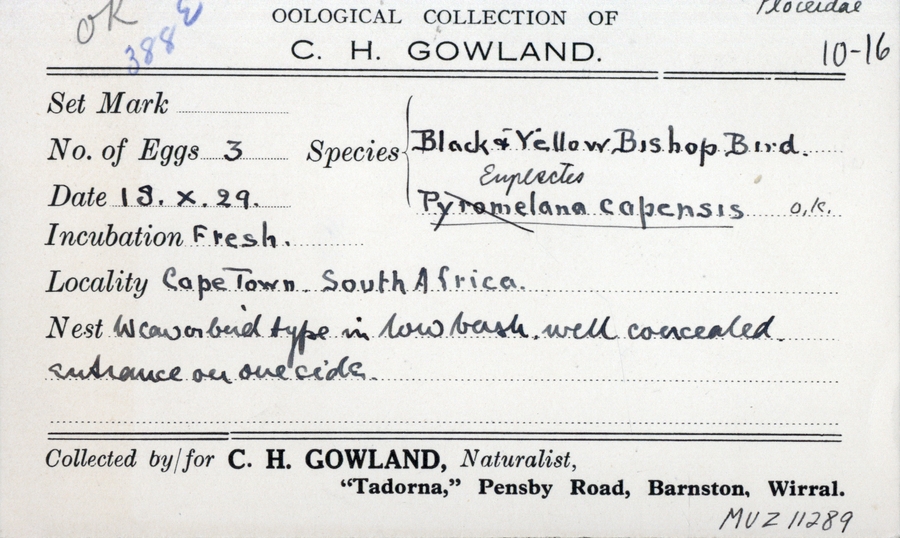 OK
388E
Ploceidae
10-16
OOLOGICAL COLLECTION OF
C. H. GOWLAND.
Set Mark
No. of Eggs 3 Species Black & Yellow Bishop Bird.
Euplectes
Date 13. X. 29. Pyromelana capensis o.k.
Incubation Fresh.
Locality Cape Town. South Africa.
Nest Weaverbird type in low bush. well concealed.
entrance on one side.
Collected by/for C. H. GOWLAND, Naturalist,
"Tadorna," Pensby Road, Barnston, Wirral.
MVZ 11289